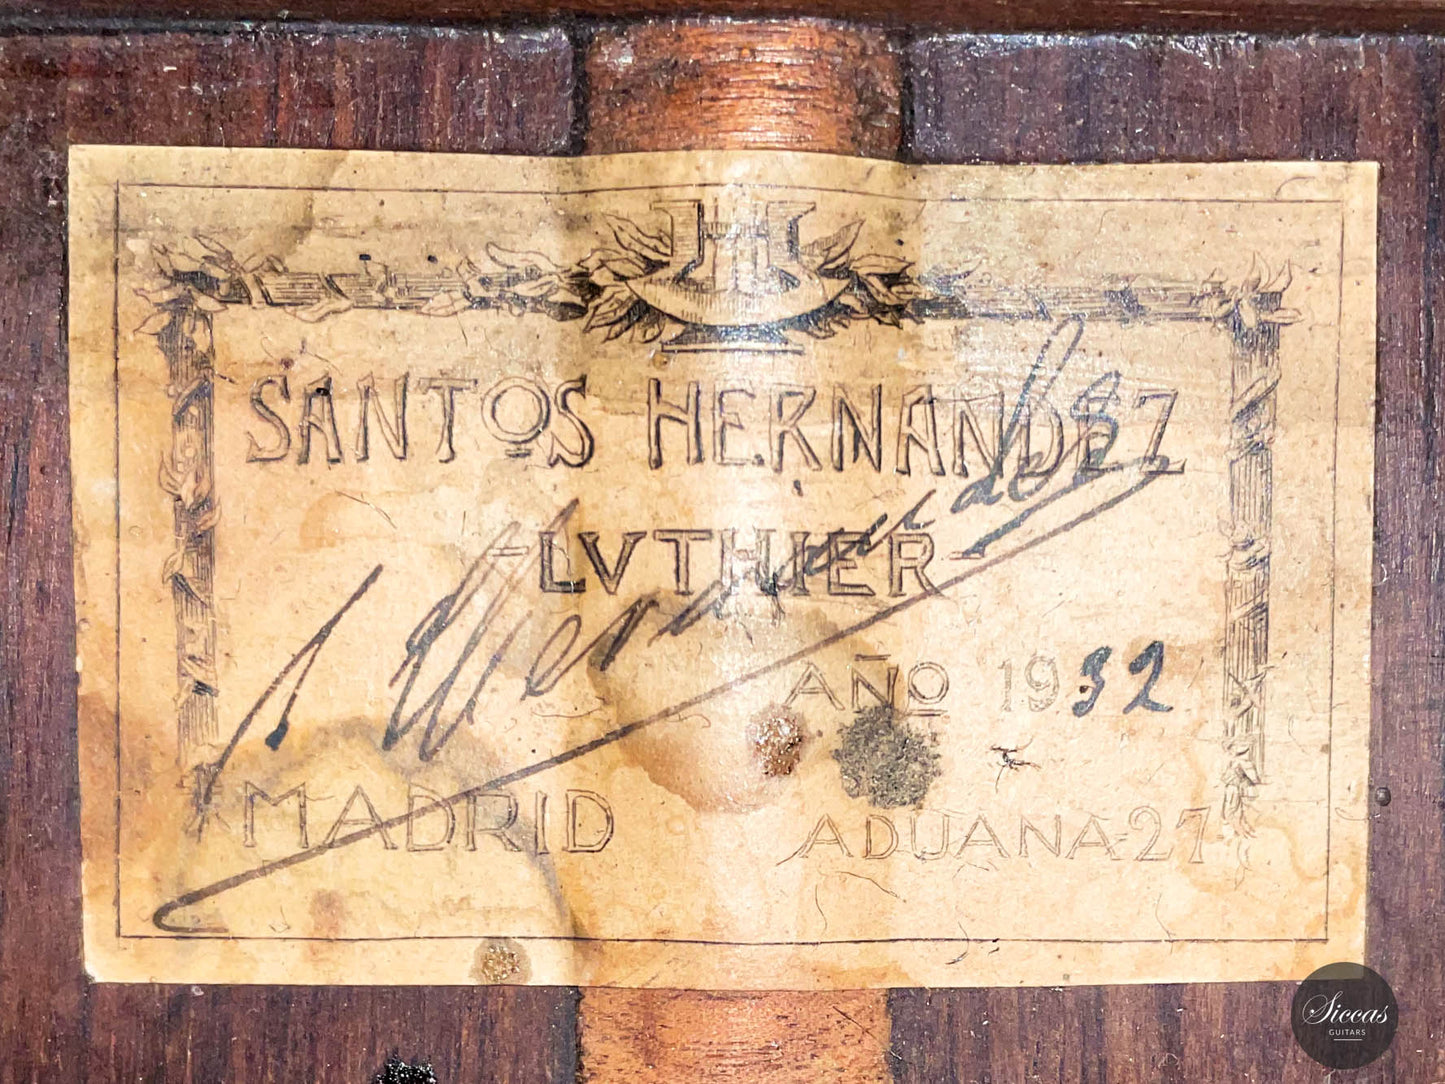 SANTOS HERNANDEZ
LVTHIER
S. Hernandez
AÑO 1932
MADRID ADUANA-27
Siccas
GUITARS